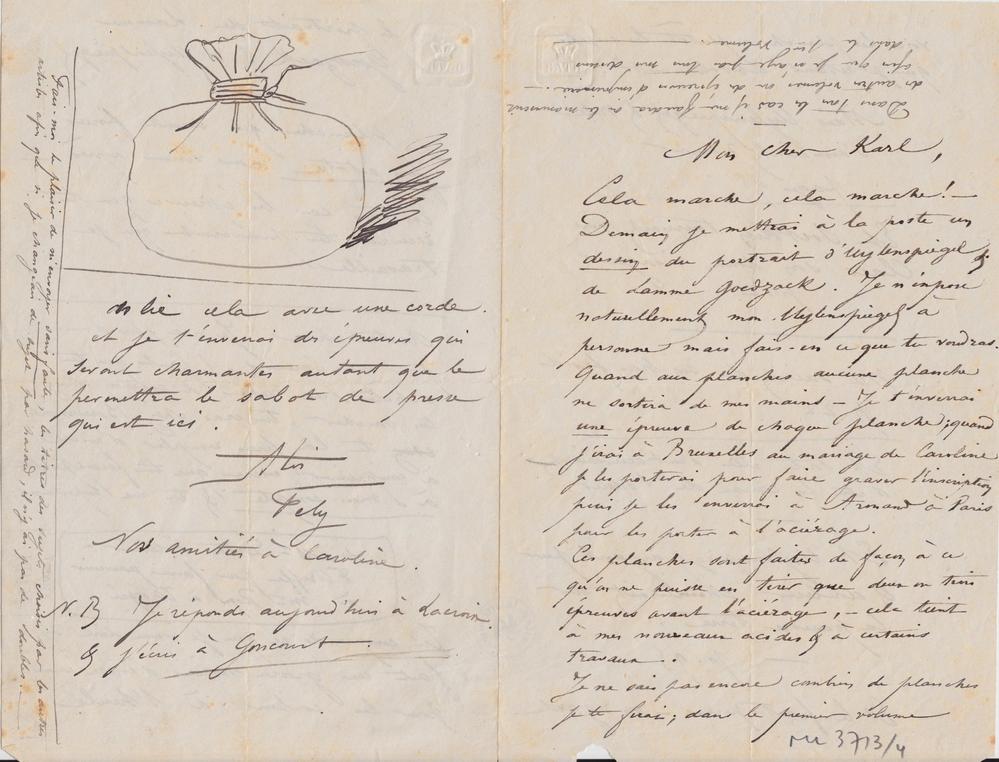 Mon cher Karl,
Cela marche, cela marche! —
Demain je mettrai à la poste un
dessin du portrait d'Uylenspiegel &
de Lamme Goedzack. Je n'impose
naturellement mon Uylenspiegel à
personne mais fais-en ce que tu voudras.
Quand aux planches aucune planche
ne sortira de mes mains — Je t'enverrai
une épreuve de chaque planche; quand
j'irai à Bruxelles au mariage de Caroline
je les porterai pour faire graver l'inscription
puis je les enverrai à Armand à Paris
pour les porter à l'aciérage.
Ces planches sont faites de façon à ce
qu'on ne puisse en tirer que deux ou trois
épreuves avant l'aciérage, — cela tient
à mes nouveaux acides & à certains
travaux..
Je ne sais pas encore combien de planches
je te ferai; dans le premier volume
Dans tous les cas il me faudra où le manuscrit
de autre volumes, ou des épreuves d'imprimerie —
afin que je n'aye pas tous mes dessins
dans le 1er volume.
lie cela avec une corde.
et je t'enverrai des épreuves qui
seront charmantes autant que le
permettra le sabot de presse
qui est ici.
à toi
Fély
Nos amitiés à Caroline.
N. B Je réponds aujourd'hui à Lacroix.
& j'écris à Goncourt.
Fais-moi le plaisir de m'envoyer sans faute, les titres des sujets choisis par les autres
artistes afin que si je changeais de sujet par hasard, il n'y ait pas de doubles.
MR 3713/4